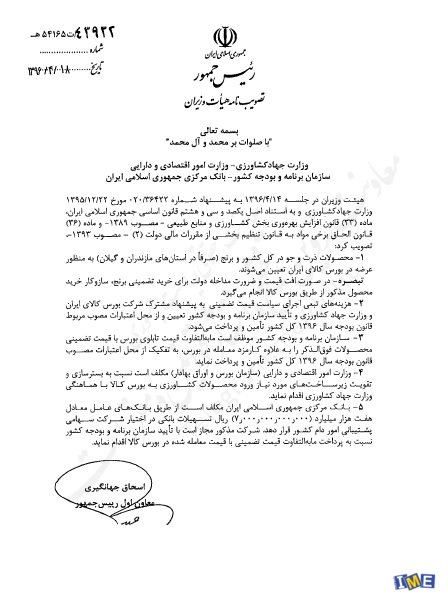 ۴۳۹۲۲/ت۵۴۱۶۵هـ
شماره
تاریخ ۱۳۹۶/۰۴/۱۸
جمهوری اسلامی ایران
رئیس جمهور
تصویب نامه هیأت وزیران
بسمه تعالی
"با صلوات بر محمد و آل محمد"
وزارت جهادکشاورزی- وزارت امور اقتصادی و دارایی
سازمان برنامه و بودجه کشور- بانک مرکزی جمهوری اسلامی ایران
هیئت وزیران در جلسه ۱۳۹۶/۴/۱۴ به پیشنهاد شماره ۰۲۰/۳۶۴۳۲ مورخ ۱۳۹۵/۱۲/۲۲
وزارت جهادکشاورزی و به استناد اصل یکصد و سی و هشتم قانون اساسی جمهوری اسلامی ایران،
ماده (۳۳) قانون افزایش بهره‌وری بخش کشاورزی و منابع طبیعی- مصوب ۱۳۸۹- و ماده (۳۶)
قانون الحاق برخی مواد به قانون تنظیم بخشی از مقررات مالی دولت (۲) - مصوب ۱۳۹۳-
تصویب کرد:
۱- محصولات ذرت و جو در کل کشور و برنج (صرفاً در استان‌های مازندران و گیلان) به منظور
عرضه در بورس کالای ایران تعیین می‌شوند.
تبصره- در صورت افت قیمت و ضرورت مداخله دولت برای خرید تضمینی برنج، سازوکار خرید
محصول مذکور از طریق بورس کالا انجام می‌گیرد.
۲- هزینه‌های تبعی اجرای سیاست قیمت تضمینی به پیشنهاد مشترک شرکت بورس کالای ایران
و وزارت جهاد کشاورزی و تأیید سازمان برنامه و بودجه کشور تعیین و از محل اعتبارات مصوب مربوط
قانون بودجه سال ۱۳۹۶ کل کشور تأمین و پرداخت می‌شود.
۳- سازمان برنامه و بودجه کشور موظف است مابه‌التفاوت قیمت تابلوی بورس با قیمت تضمینی
محصولات فوق‌الذکر را به علاوه کارمزد معامله در بورس، به تفکیک از محل اعتبارات مصوب
قانون بودجه سال ۱۳۹۶ کل کشور تأمین و پرداخت نماید.
۴- وزارت امور اقتصادی و دارایی (سازمان بورس و اوراق بهادار) مکلف است نسبت به بسترسازی و
تقویت زیرساخت‌های مورد نیاز ورود محصولات کشاورزی به بورس کالا با هماهنگی
وزارت جهاد کشاورزی اقدام نماید.
۵- بانک مرکزی جمهوری اسلامی ایران مکلف است از طریق بانک‌های عامل معادل
هفت هزار میلیارد (۷٫۰۰۰٫۰۰۰٫۰۰۰٫۰۰۰) ریال تسهیلات بانکی در اختیار شرکت سهامی
پشتیبانی امور دام کشور قرار دهد. شرکت مذکور مجاز است با تأیید سازمان برنامه و بودجه کشور
نسبت به پرداخت مابه‌التفاوت قیمت تضمینی با قیمت معامله شده در بورس کالا اقدام نماید.
اسحاق جهانگیری
معاون اول رییس‌جمهور
IME